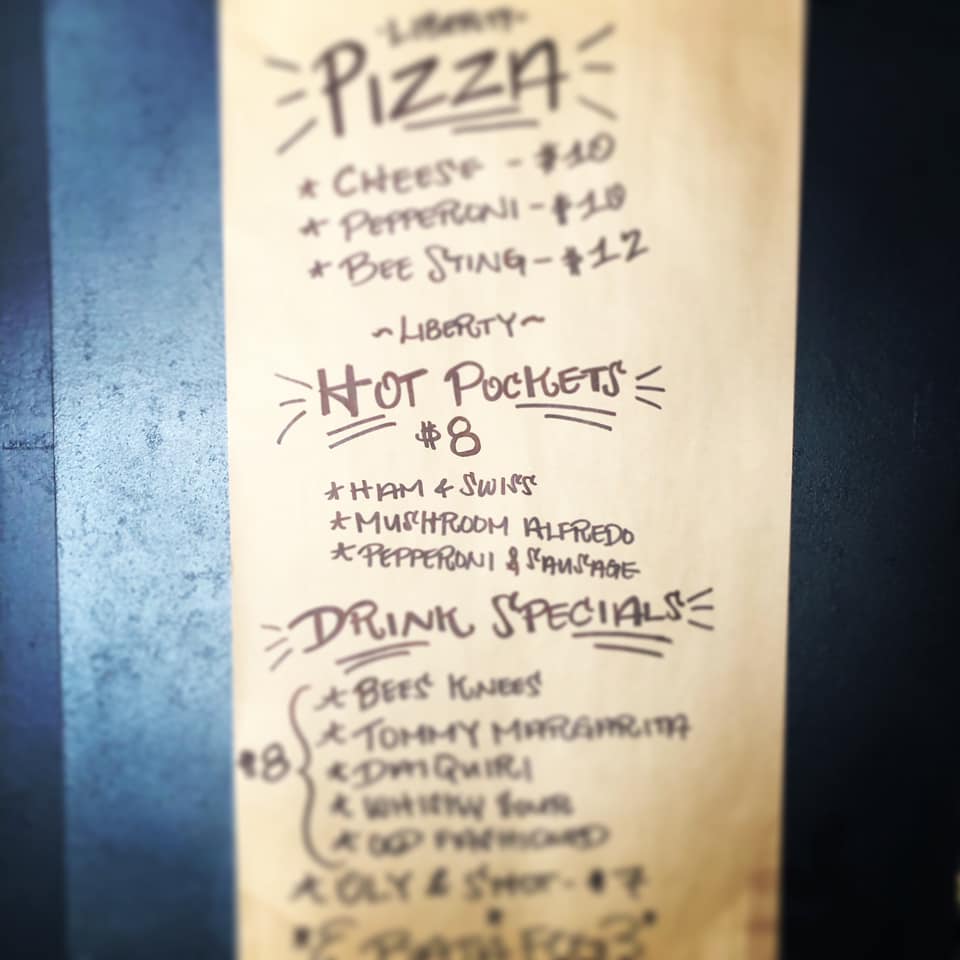 -LIBERTY-
PIZZA
* CHEESE - $10
* PEPPERONI - $10
* BEE STING - $12
~LIBERTY~
HOT POCKETS
$8
* HAM & SWISS
* MUSHROOM ALFREDO
* PEPPERONI & SAUSAGE
DRINK SPECIALS
* BEES KNEES
* TOMMY MARGARITA
$8 * DAIQUIRI
* WHISKY SOUR
* OLD FASHIONED
* OLY & SHOT - $7